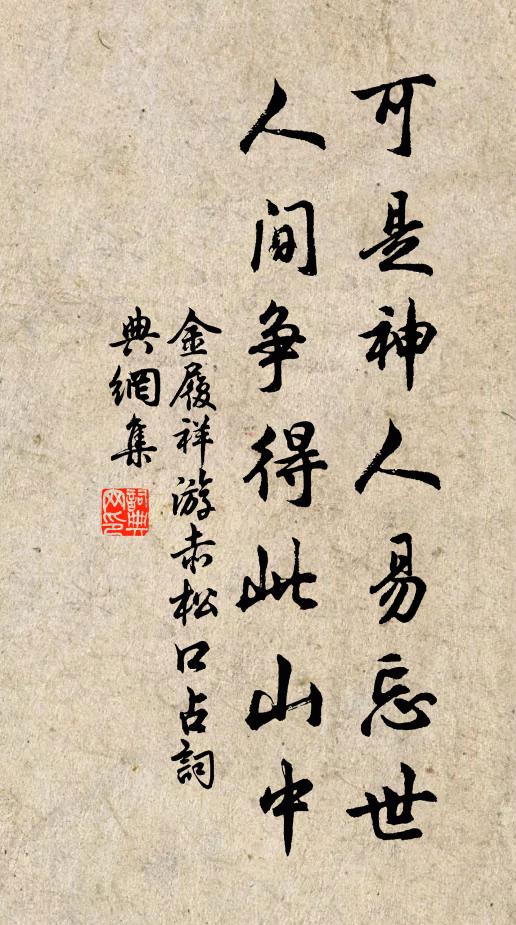 可是神人易忘世
人间争得此山中
金履祥游赤松口占詞
典網集
詞典網印